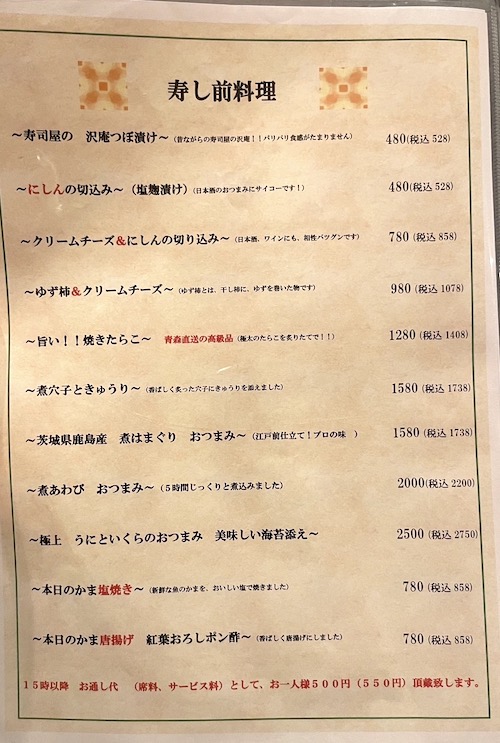 寿し前料理
～寿司屋の　沢庵つぼ漬け～（昔ながらの寿司屋の沢庵！！パリパリ食感がたまりません） 480(税込 528)
～にしんの切込み～（塩麹漬け）（日本酒のおつまみにサイコーです！） 480(税込 528)
～クリームチーズ&にしんの切り込み～（日本酒、ワインにも、相性バツグンです） 780 (税込 858)
～ゆず柿&クリームチーズ～（ゆず柿とは、干し柿に、ゆずを巻いた物です） 980 (税込 1078)
～旨い！！焼きたらこ～　青森直送の高級品（極太のたらこを炙りたてで！！） 1280 (税込 1408)
～煮穴子ときゅうり～（香ばしく炙った穴子にきゅうりを添えました） 1580 (税込 1738)
～茨城県鹿島産　煮はまぐり　おつまみ～（江戸前仕立て！プロの味　） 1580 (税込 1738)
～煮あわび　おつまみ～（５時間じっくりと煮込みました） 2000(税込 2200)
～極上　うにといくらのおつまみ　美味しい海苔添え～ 2500 (税込 2750)
～本日のかま塩焼き～（新鮮な魚のかまを、おいしい塩で焼きました） 780 (税込 858)
～本日のかま唐揚げ　紅葉おろしポン酢～（香ばしく唐揚げにしました） 780 (税込 858)
１５時以降　お通し代　（席料、サービス料）として、お一人様５００円（５５０円）頂戴致します。